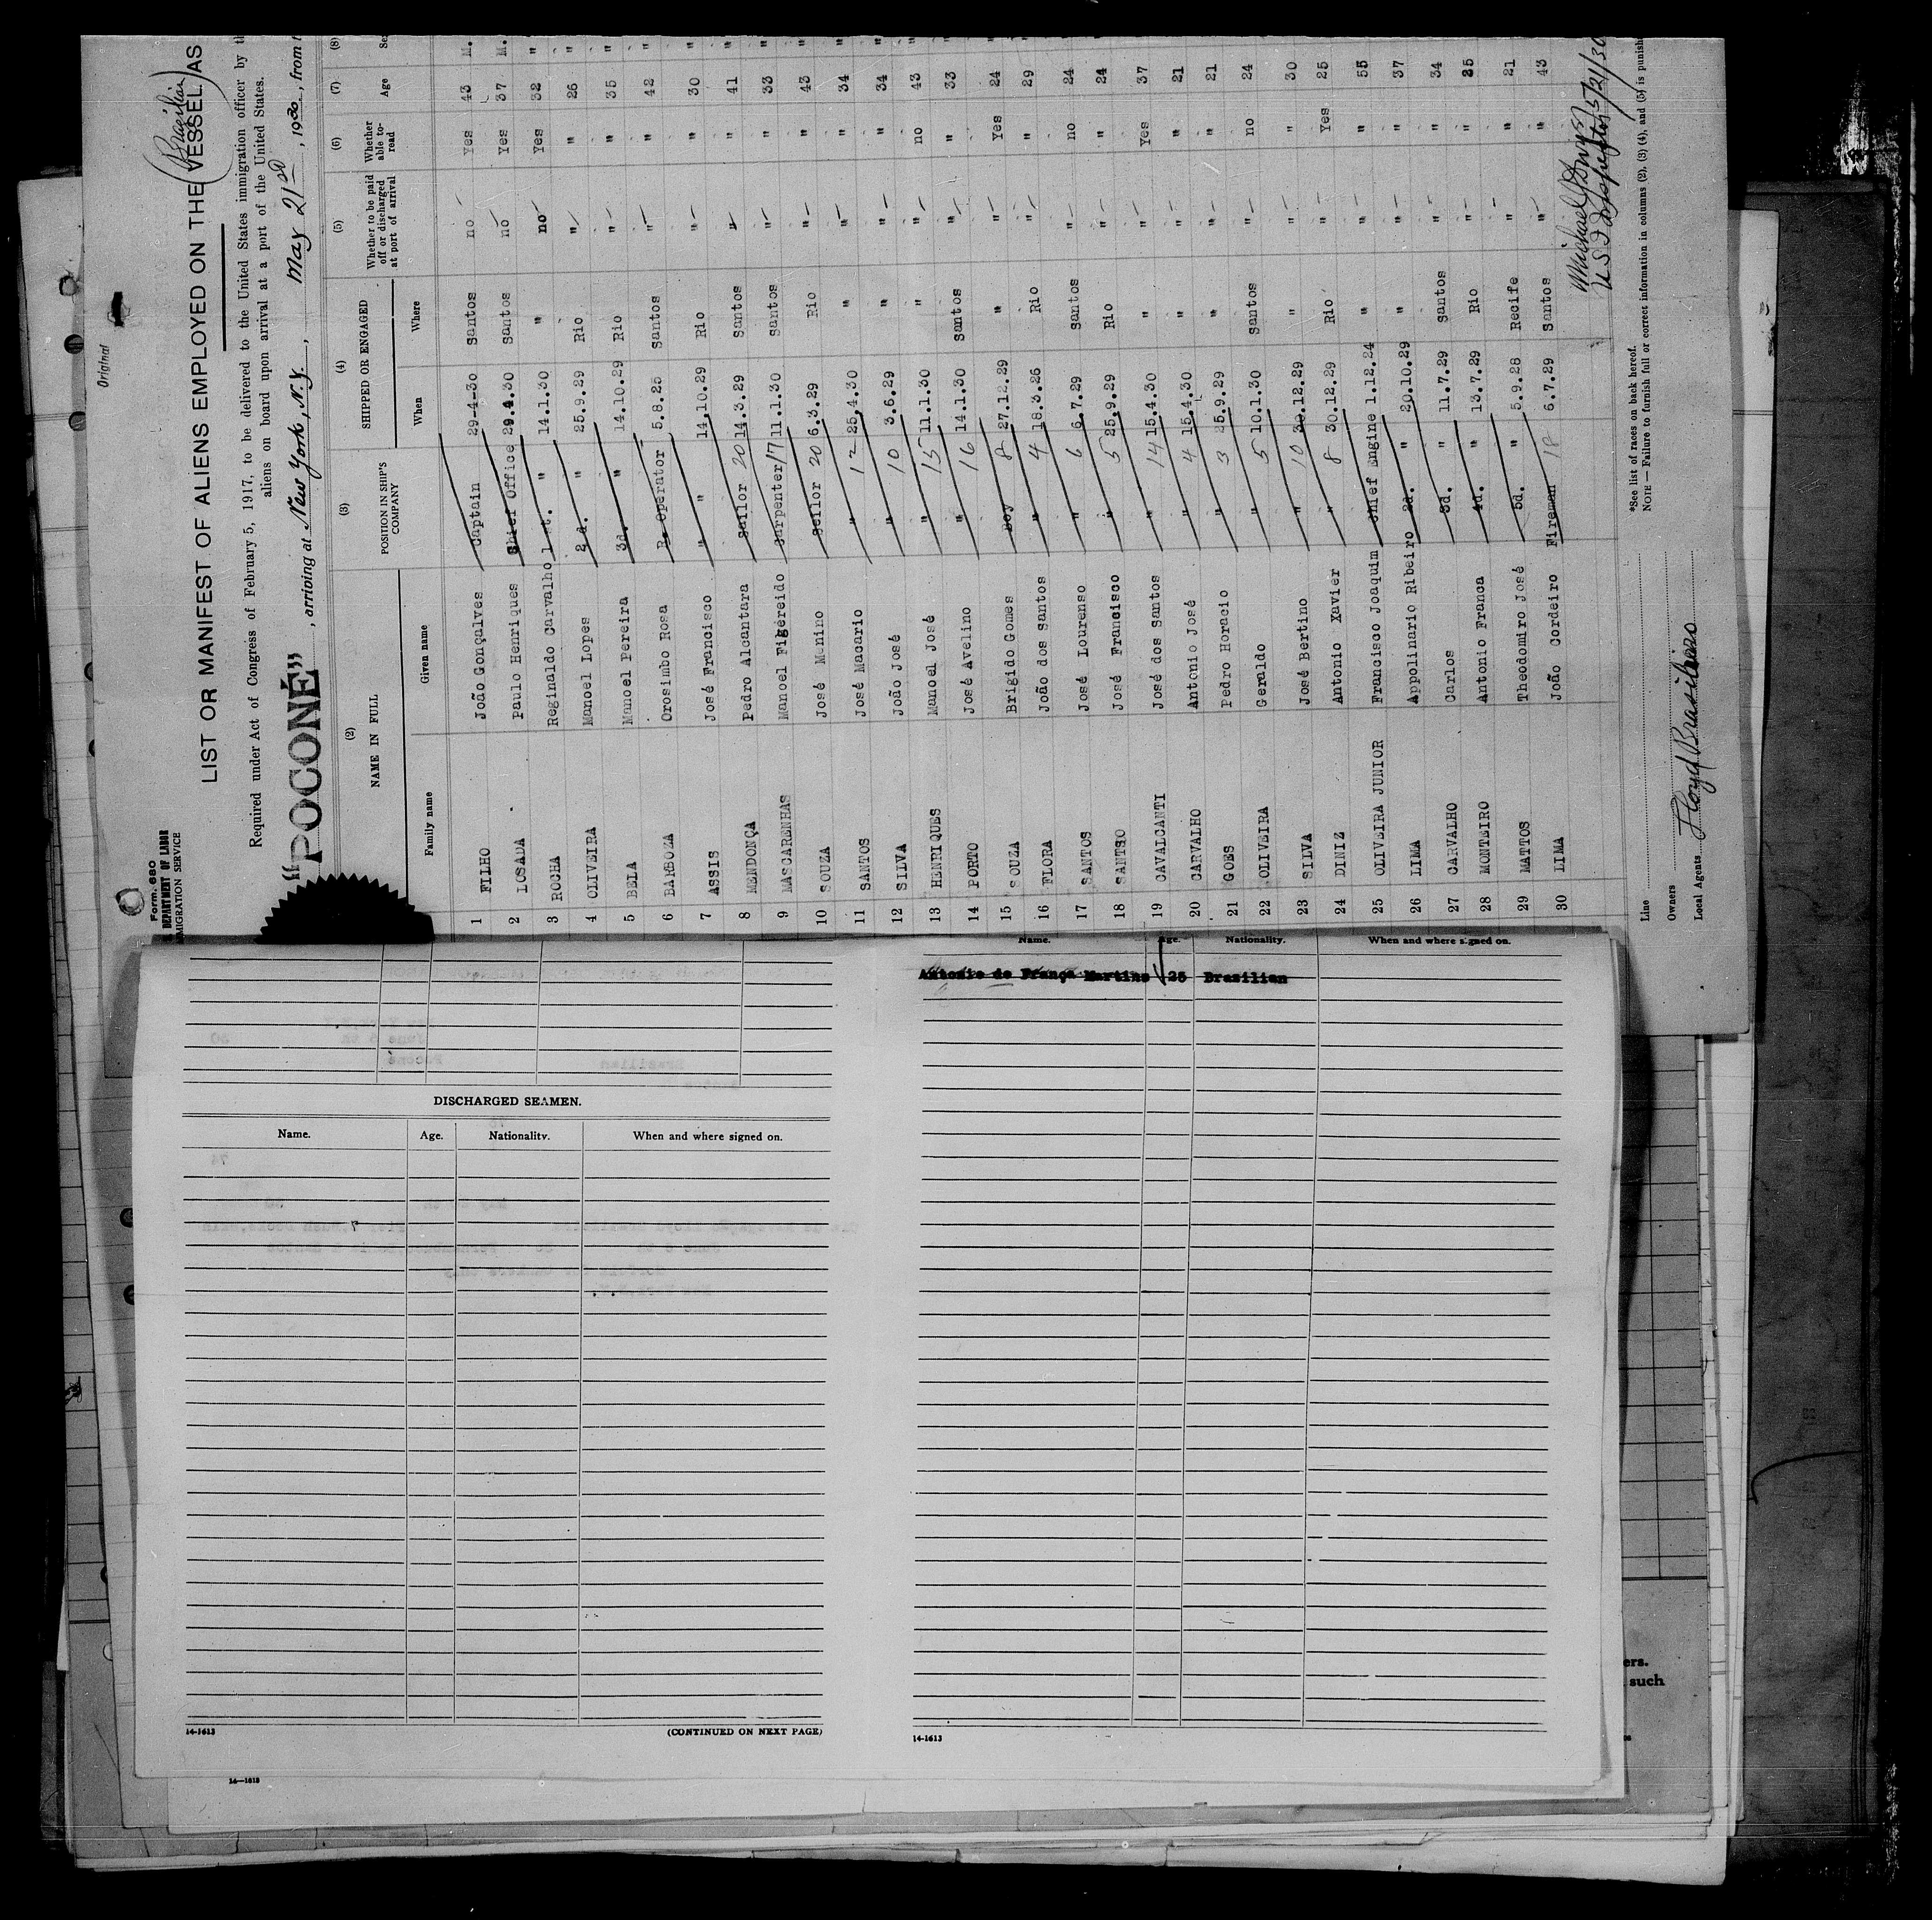 Original
Form 680
DEPARTMENT OF LABOR
IMMIGRATION SERVICE
(Brazilian)
LIST OR MANIFEST OF ALIENS EMPLOYED ON THE VESSEL AS
Required under Act of Congress of February 5, 1917, to be delivered to the United States immigration officer by
aliens on board upon arrival at a port of the United States.
"POCONÉ", arriving at New York, N.Y., May 21st, 1930, from
(2) (3) (4) (5) (6) (7) (8)
NAME IN FULL POSITION IN SHIP'S COMPANY SHIPPED OR ENGAGED Whether to be paid off or discharged at port of arrival Whether able to read Age
Family name Given name When Where
1 FILHO João Gonçalves Captain 29-4-30 Santos no Yes 43 M.
2 LOSADA Paulo Henriques Chief Office 29.4.30 Santos no Yes 37 M.
3 ROCHA Reginaldo Carvalho 1 st. " 14.1.30 " no Yes 32 "
4 OLIVEIRA Manoel Lopes 2 d. " 25.9.29 Rio " " 26 "
5 BELA Manoel Pereira 3d. " 14.10.29 Rio " " 35 "
6 BARBOZA Orosimbo Rosa R. Operator 5.8.25 Santos " " 42 "
7 ASSIS José Francisco " 14.10.29 Rio " " 30 "
8 MENDONÇA Pedro Alcantara Sailor 20 14.3.29 Santos " " 41 "
9 MASCARENHAS Manoel Figereido Carpenter 17 11.1.30 Santos " " 33 "
10 SOUZA José Menino Sailor 20 6.3.29 Rio " " 43 "
11 SANTOS José Macario " 12 25.4.30 " " " 34 "
12 SILVA João José " 10 3.6.29 " " " 34 "
13 HENRIQUES Manoel José " 15 11.1.30 " " no 43 "
14 PORTO José Avelino " 16 14.1.30 Santos " " 33 "
15 SOUZA Brigido Gomes Boy 8 27.12.29 " " Yes 24 "
16 FLORA João dos Santos " 4 18.3.26 Rio " " 29 "
17 SANTOS José Lourenso " 6 6.7.29 Santos " no 24 "
18 José Francisco " 5 25.9.29 Rio " " 24 "
19 CAVALCANTI José dos Santos " 14 15.4.30 " " Yes 37 "
20 CARVALHO Antonio José " 4 15.4.30 " " " 21 "
21 GOES Pedro Horacio " 3 25.9.29 " " " 21 "
22 OLIVEIRA Geraldo " 5 10.1.30 Santos " no 24 "
23 SILVA José Bertino " 10 30.12.29 " " " 30 "
24 DINIZ Antonio Xavier " 8 30.12.29 Rio " Yes 25 "
25 OLIVEIRA JUNIOR Francisco Joaquim Chief Engine 1.12.24 " " " 55 "
26 LIMA Appolinario Ribeiro 2d. " 20.10.29 " " " 37 "
27 CARVALHO Carlos 3d. " 11.7.29 Santos " " 34 "
28 MONTEIRO Antonio Franca 4d. " 13.7.29 Rio " " 25 "
29 MATTOS Theodomiro José 5d. " 5.9.28 Recife " " 21 "
30 LIMA João Cordeiro Fireman 18 6.7.29 Santos " " 43 "
Michael
U S I Inspector 5/21/30
*See list of races on back hereof.
NOTE — Failure to furnish full or correct information in columns (2), (3) (4), and (5) is punish
Line
Owners
Local Agents Lloyd Brasileiro
DISCHARGED SEAMEN.
Name. Age. Nationality. When and where signed on.
14-1613
(CONTINUED ON NEXT PAGE)
Name. Age. Nationality. When and where signed on.
Antonio de França Martins 25 Brasilian
14-1613
14—1613
ers.
such